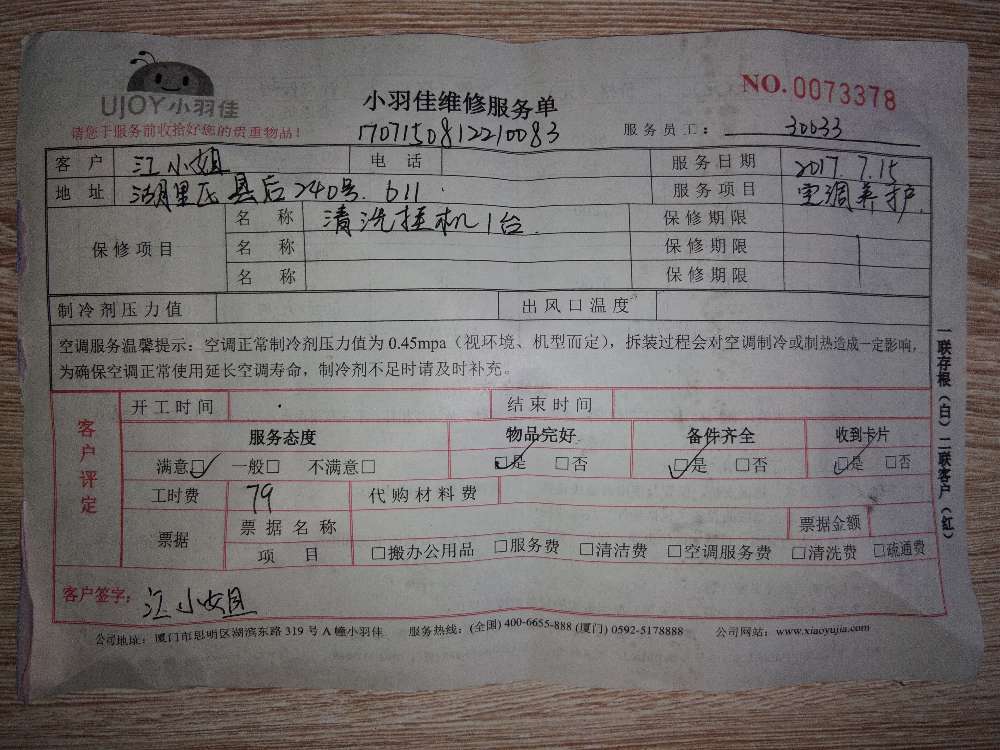 UJOY小羽佳
请您于服务前收拾好您的贵重物品！
小羽佳维修服务单
NO. 0073378
1707150812210083
服务员工： 30633
客户 江小姐 电话 服务日期 2017.7.15
地址 湖里区县后240号.611. 服务项目 空调养护.
保修项目 名称 清洗挂机1台. 保修期限
名称 保修期限
名称 保修期限
制冷剂压力值 出风口温度
空调服务温馨提示：空调正常制冷剂压力值为 0.45mpa（视环境、机型而定），拆装过程会对空调制冷或制热造成一定影响，
为确保空调正常使用延长空调寿命，制冷剂不足时请及时补充。
客户评定
开工时间 结束时间
服务态度 物品完好 备件齐全 收到卡片
满意☑ 一般□ 不满意□ ☑是 □否 ☑是 □否 ☑是 □否
工时费 79 代购材料费
票据 票据名称 票据金额
项目 □搬办公用品 □服务费 □清洁费 □空调服务费 □清洗费 □疏通费
客户签字： 江小姐
公司地址：厦门市思明区湖滨东路 319 号 A 幢小羽佳 服务热线：(全国) 400-6655-888 (厦门) 0592-5178888 公司网站：www.xiaoyujia.com
一联存根（白）二联客户（红）